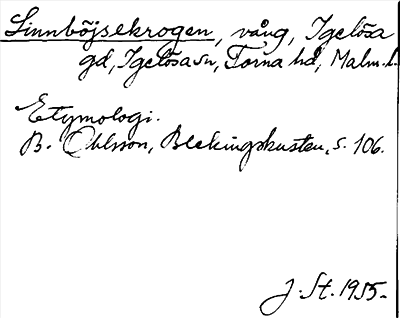 Linnböjsekrogen, vång, Igelösa
gd, Igelösa sn, Torna hd, Malm. l.
Etymologi.
B. Ohlsson, Blekingskusten, s. 106.
J. St. 1955.